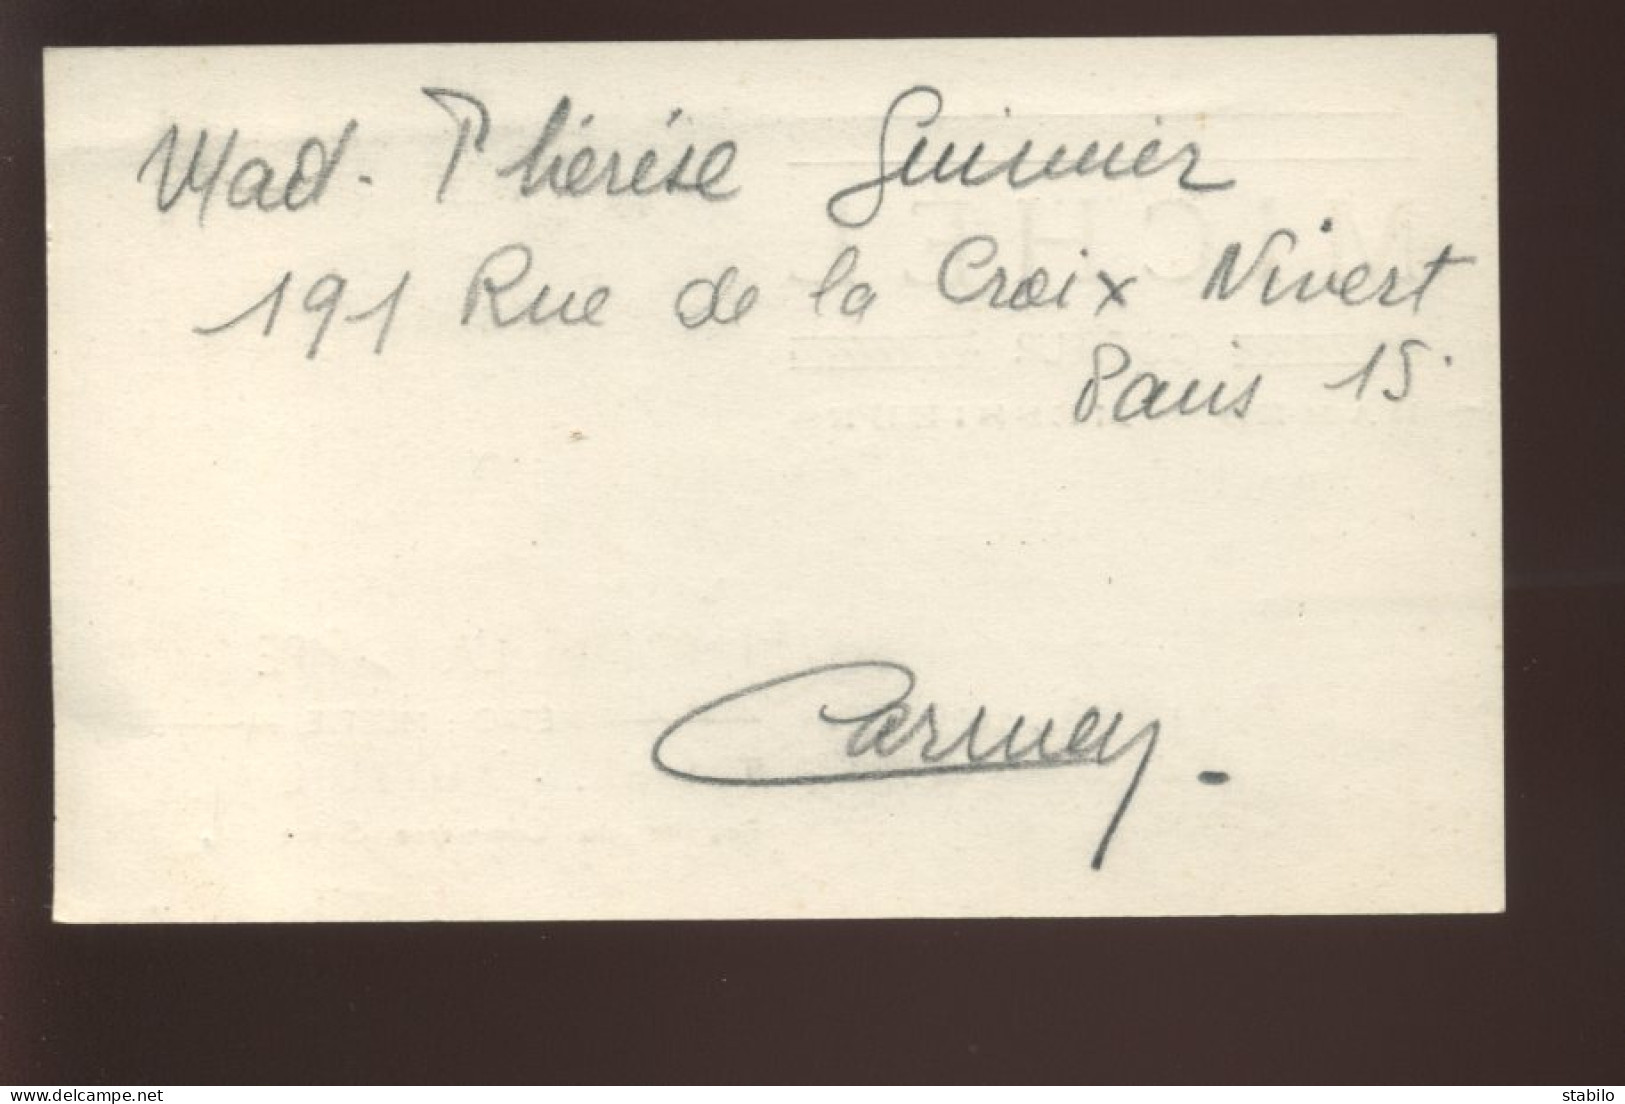 Mad. Thérèse Guinier
191 Rue de la Croix Nivert
Paris 15.
Carmen.
delcampe.net
stabilo